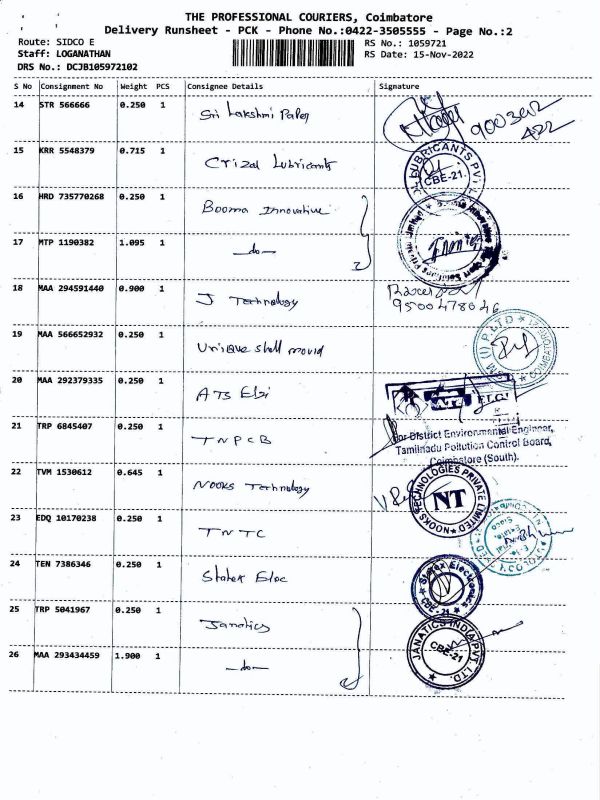 THE PROFESSIONAL COURIERS, Coimbatore
Delivery Runsheet - PCK - Phone No.:0422-3505555 - Page No.:2
Route: SIDCO E
Staff: LOGANATHAN
DRS No.: DCJB105972102
RS No.: 1059721
RS Date: 15-Nov-2022
S No Consignment No Weight PCS Consignee Details Signature
14 STR 566666 0.250 1 Sri Lakshmi
15 KRR 5548379 0.715 1 Crizal Lubricants
LUBRICANTS PVT. CBE-21.
16 HRD 735770268 0.250 1 Booma Innovative
17 MTP 1190382 1.095 1 -do-
18 MAA 294591440 0.900 1 J Technology
9500478646
19 MAA 566652932 0.250 1 Unique shell mould
20 MAA 292379335 0.250 1 ATS Elgi
ELGI
21 TRP 6845407 0.250 1 TNPCB
For District Environmental Engineer,
Tamilnadu Pollution Control Board,
Coimbatore (South).
22 TVM 1530612 0.645 1 Nooks Technology
NOOKS TECHNOLOGIES PRIVATE LIMITED
NT
23 EDQ 10170238 0.250 1 TNTC
24 TEN 7386346 0.250 1 Statex Elec
Statex Electronics
25 TRP 5041967 0.250 1 Janatics
JANATICS INDIA PVT. LTD.
CBE-21
26 MAA 293434459 1.900 1 -do-